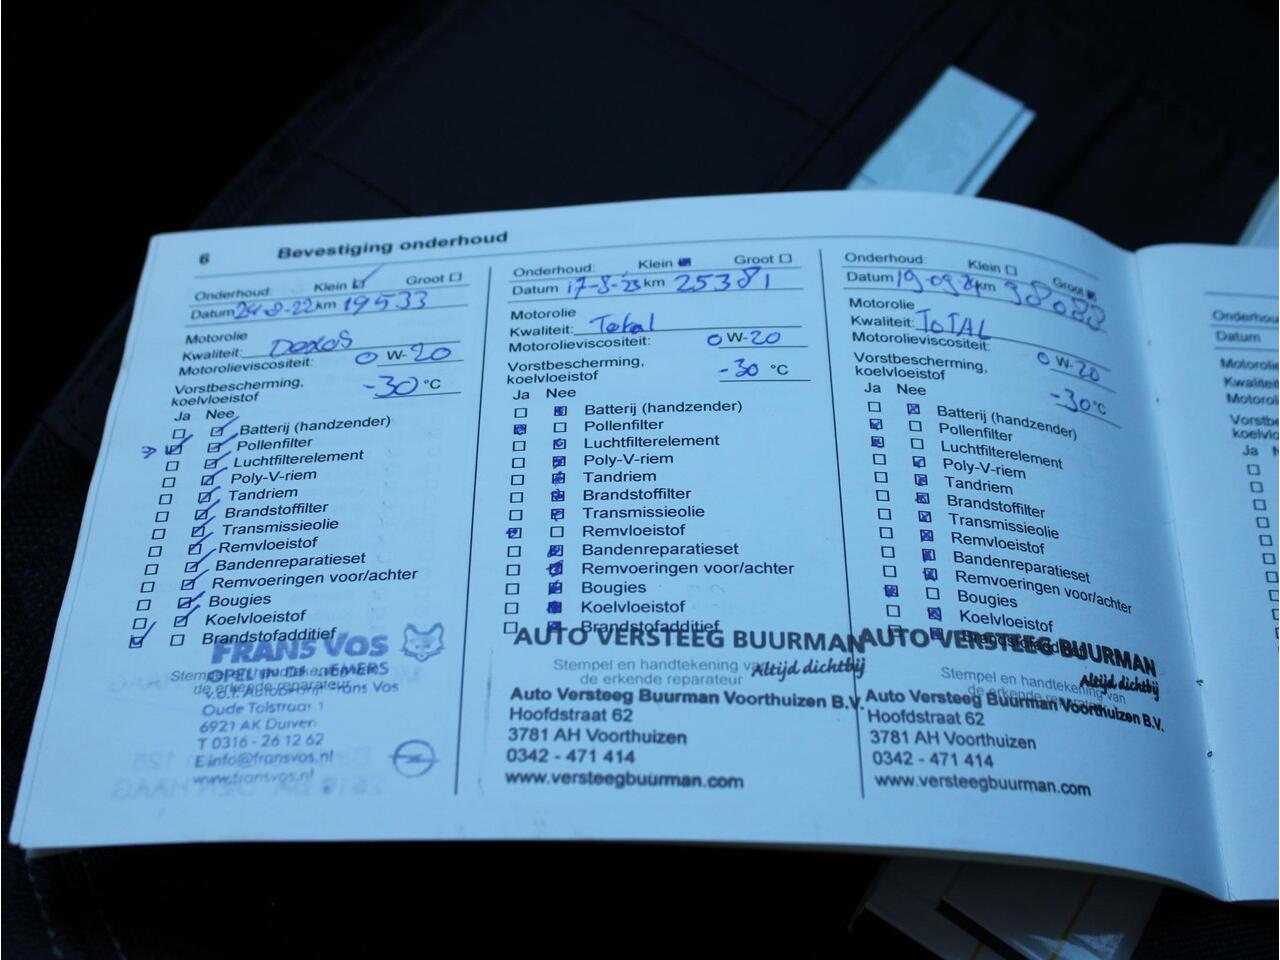 6 Bevestiging onderhoud
Onderhoud: Klein Groot
Datum km 19533
Motorolie
Kwaliteit: Dexos
Motorolieviscositeit: 0 W-20
Vorstbescherming,
koelvloeistof -30 °C
Ja Nee
Batterij (handzender)
Pollenfilter
Luchtfilterelement
Poly-V-riem
Tandriem
Brandstoffilter
Transmissieolie
Remvloeistof
Bandenreparatieset
Remvoeringen voor/achter
Bougies
Koelvloeistof
Brandstofadditief
FRANS VOS
Stempel en handtekening
de erkende reparateur
Oude Tolstraat 1
6921 AK Duiven
T 0316 - 26 12 62
E info@fransvos.nl
www.fransvos.nl
Onderhoud: Klein Groot
Datum 17-8-23 km 25381
Motorolie
Kwaliteit: Total
Motorolieviscositeit: 0 W-20
Vorstbescherming,
koelvloeistof -30 °C
Ja Nee
Batterij (handzender)
Pollenfilter
Luchtfilterelement
Poly-V-riem
Tandriem
Brandstoffilter
Transmissieolie
Remvloeistof
Bandenreparatieset
Remvoeringen voor/achter
Bougies
Koelvloeistof
Brandstofadditief
AUTO VERSTEEG BUURMAN
Altijd dichtbij
Stempel en handtekening van
de erkende reparateur
Auto Versteeg Buurman Voorthuizen B.V.
Hoofdstraat 62
3781 AH Voorthuizen
0342 - 471 414
www.versteegbuurman.com
Onderhoud: Klein Groot
Datum 19-09-24 km 38088
Motorolie
Kwaliteit: TOTAL
Motorolieviscositeit: 0 W-20
Vorstbescherming,
koelvloeistof -30 °C
Ja Nee
Batterij (handzender)
Pollenfilter
Luchtfilterelement
Poly-V-riem
Tandriem
Brandstoffilter
Transmissieolie
Remvloeistof
Bandenreparatieset
Remvoeringen voor/achter
Bougies
Koelvloeistof
AUTO VERSTEEG BUURMAN
Altijd dichtbij
Stempel en handtekening van
de erkende reparateur
Auto Versteeg Buurman Voorthuizen B.V.
Hoofdstraat 62
3781 AH Voorthuizen
0342 - 471 414
www.versteegbuurman.com
Datum
Ja N